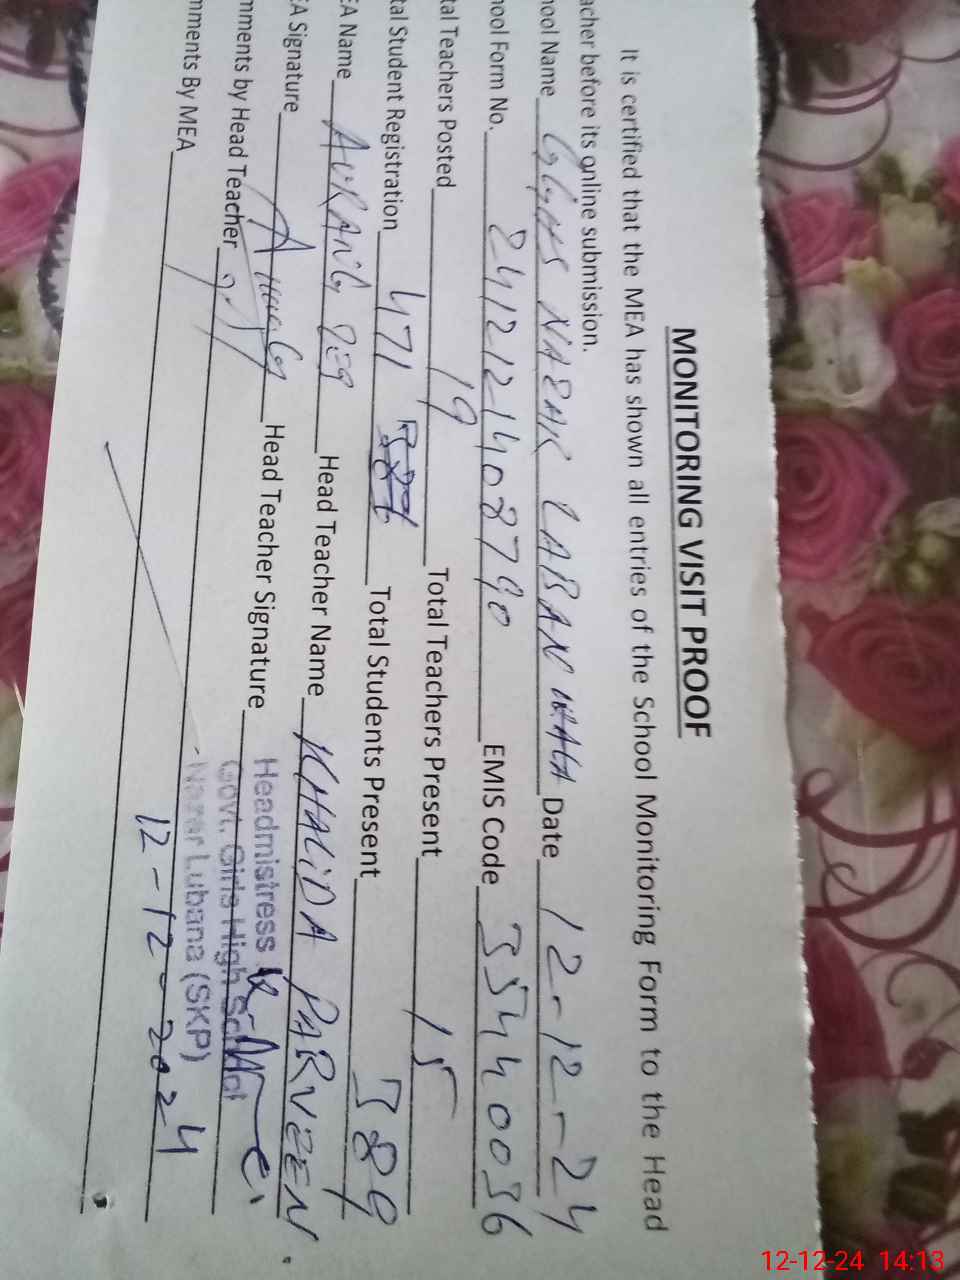 MONITORING VISIT PROOF
It is certified that the MEA has shown all entries of the School Monitoring Form to the Head
acher before its online submission.
hool Name GGHS NAZAR LABAN WALA Date 12-12-24
hool Form No. 2412121408790 EMIS Code 35440036
tal Teachers Posted 19 Total Teachers Present 15
tal Student Registration 471 Total Students Present 389
EA Name AURANG ZEB Head Teacher Name KHALIDA PARVEEN
EA Signature Head Teacher Signature
Headmistress
mments by Head Teacher
Govt. Girls High School
Nazar Lubana (SKP)
mments By MEA
12-12-2024
12-12-24 14:13